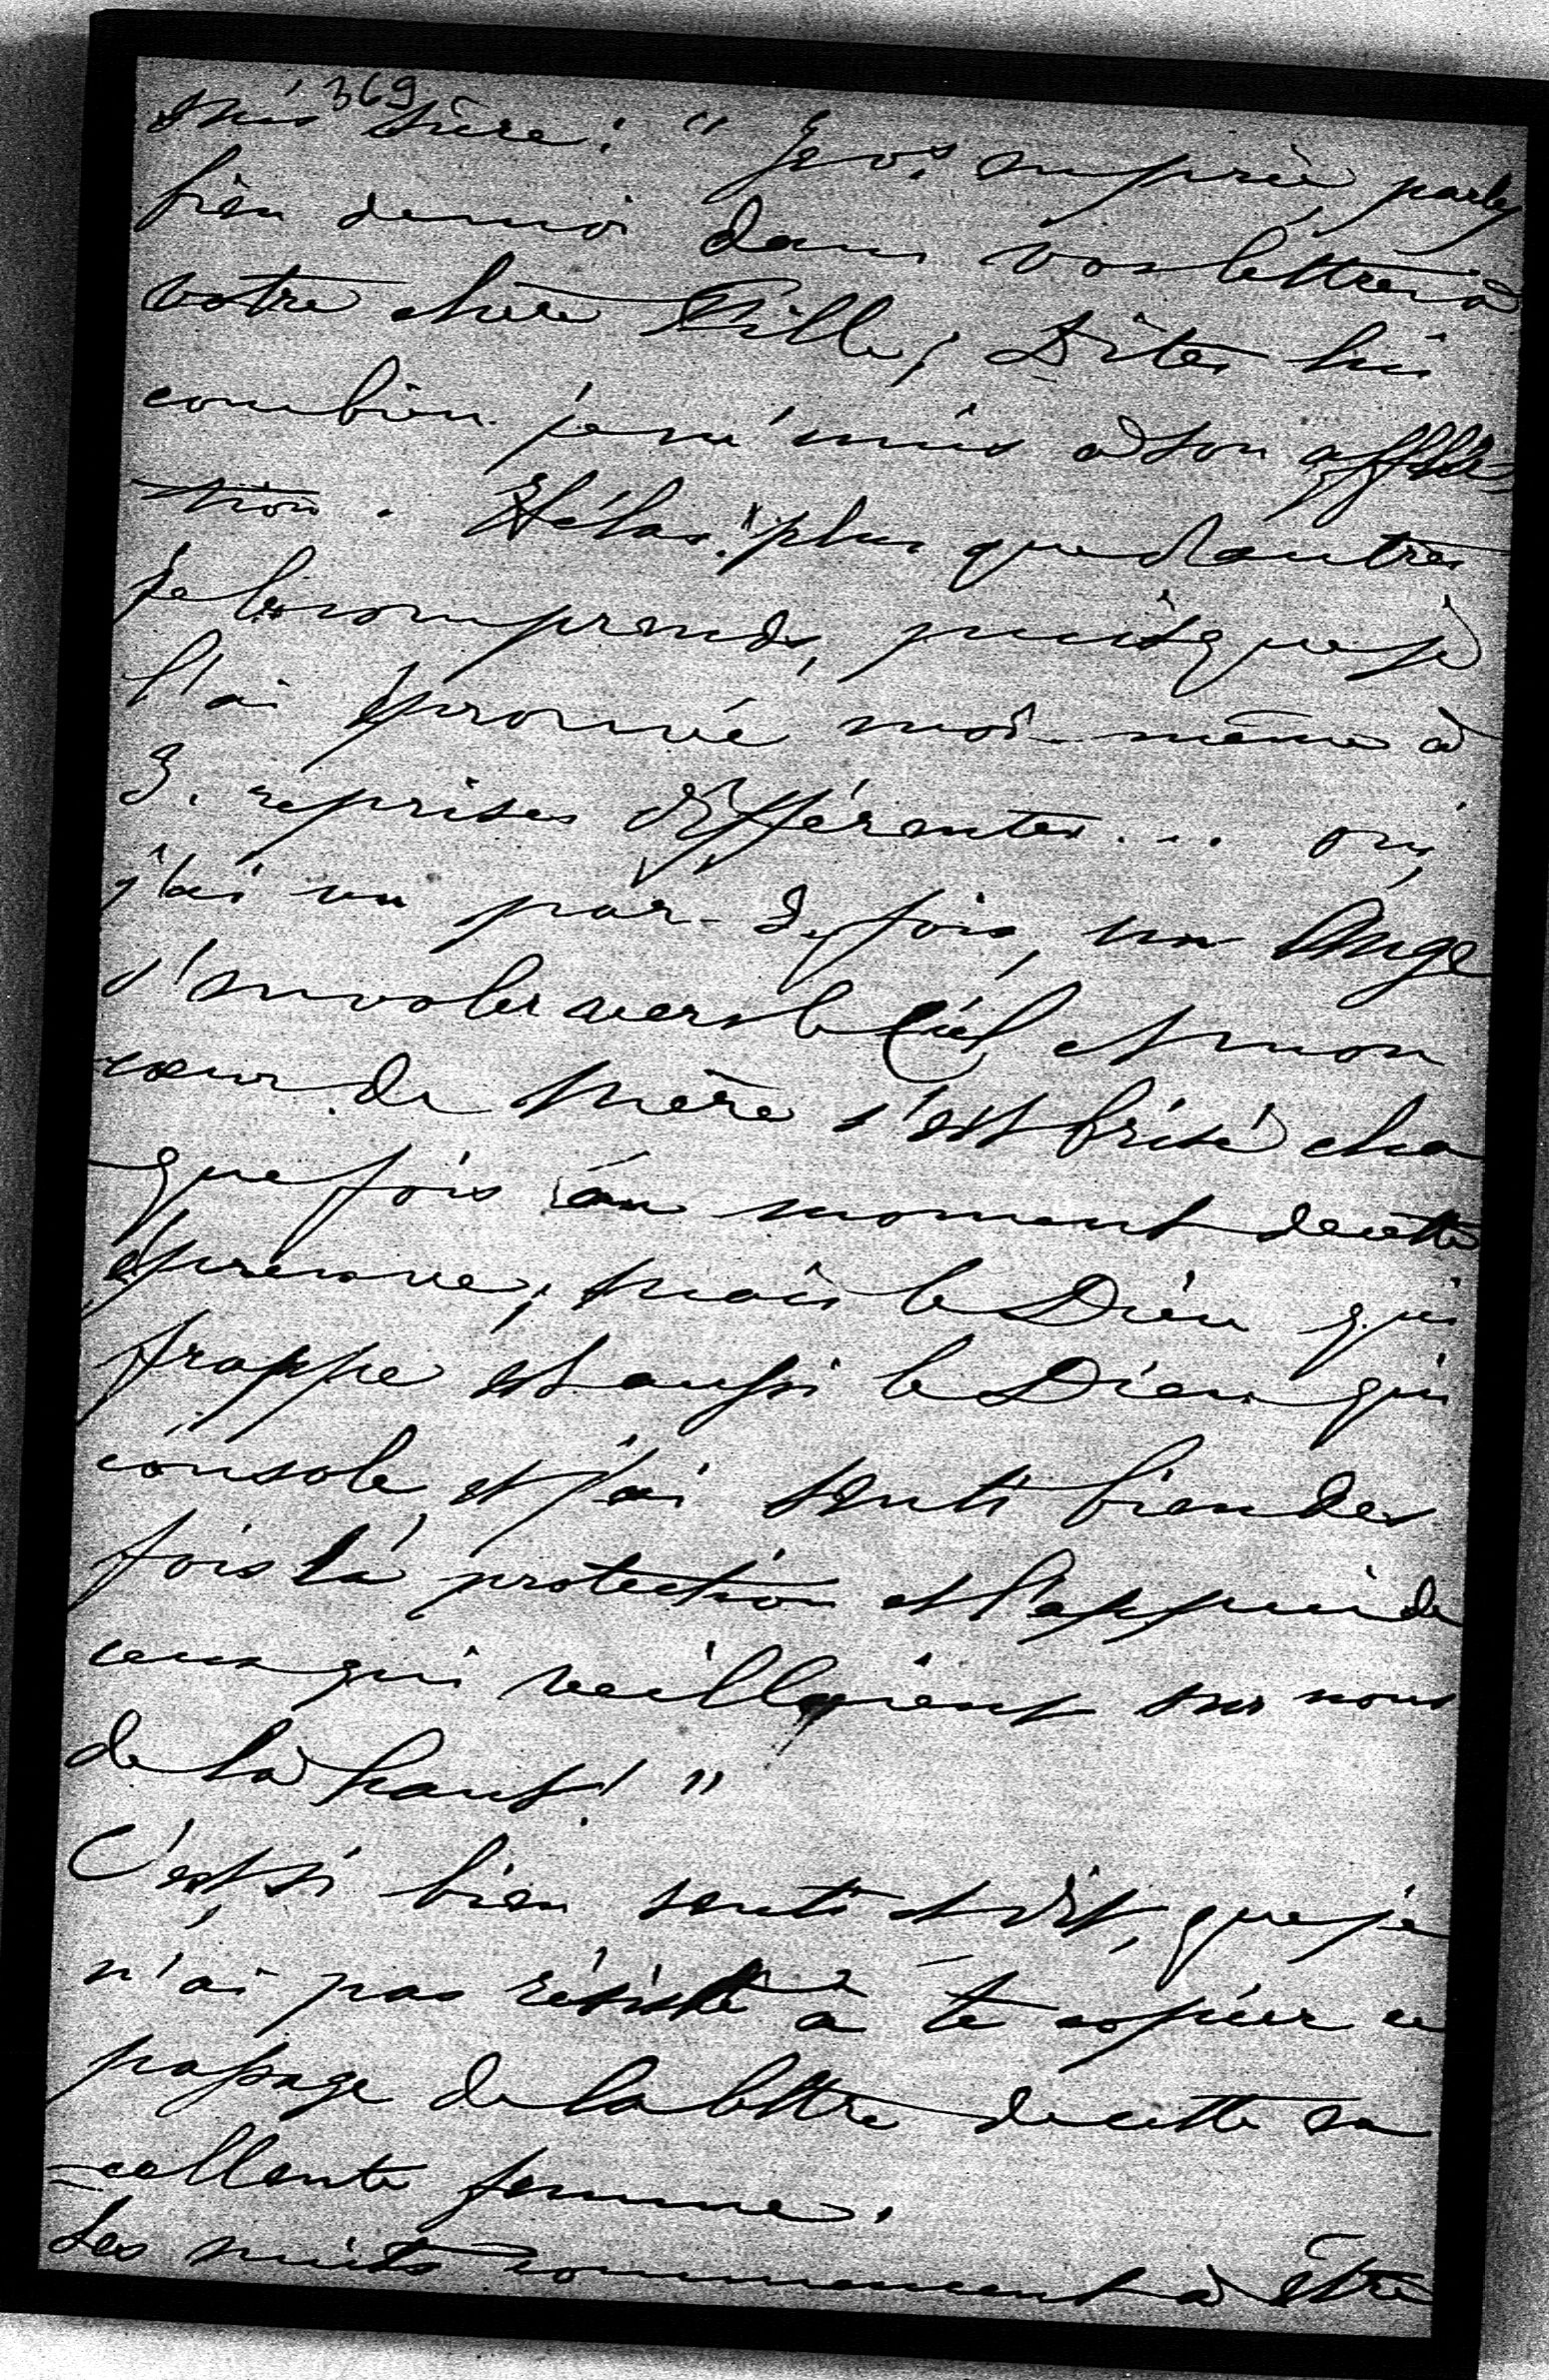 369
suis sûre : " Je vs. en prie, parlez
bien de moi dans vos lettres à
votre chère Fille ; Dites lui
combien je m'unis à son afflic-
-tion. Hélas ! plus que d'autres
je la comprends, puisque je
l'ai éprouvé moi-même à
3. reprises différentes... oui,
j'ai vu par 3 fois, un Ange
s'envoler vers le Ciel, et mon
cœur de Mère s'est brisé cha
-que fois au moment de cette
épreuve ; Mais le Dieu qui
frappe est aussi le Dieu qui
console, et j'ai senti bien des
fois la protection et l'appui de
ceux qui veillaient sur nous
de là haut ! "
C'est si bien senti et dit, que je
n'ai pas résisté à te copier ce
passage de la lettre de cette ex
-cellente femme.
Les nuits commencent à être